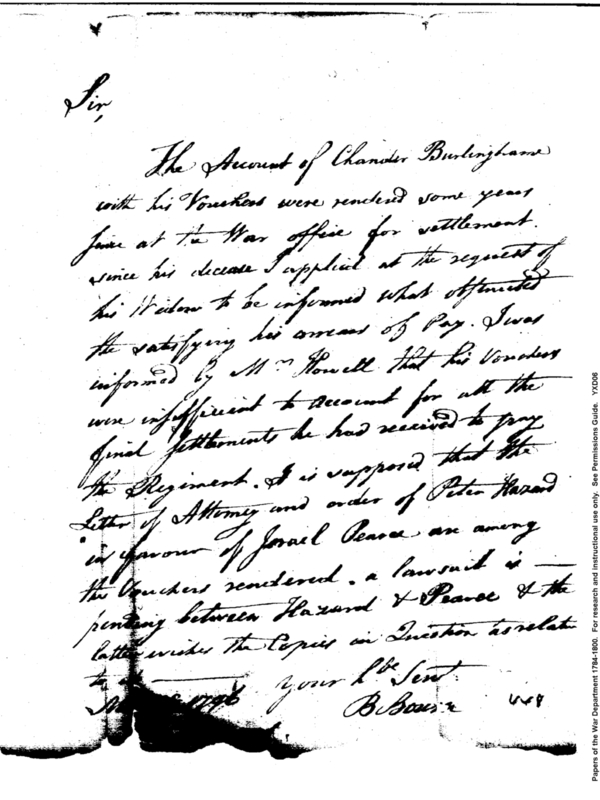 Sir,
The Account of Chander Burlinghame
with his Vouchers were rendered some years
since at the War office for settlement.
since his decease I applied at the request of
his Widow to be informed what obstructed
the satisfying his arrears of Pay. I was
informed by Mr Howell that his Vouchers
were insufficient to account for all the
final settlements he had received to pay
the Regiment. It is supposed that the
Letter of Attorney and order of Peter Hazard
in favour of Israel Pearce are among
the Vouchers rendered. a lawsuit is —
pending between Hazard & Pearce & the
latter wishes the Copies in Question as relate
to — your hble Servt
1796 B Bourn
Papers of the War Department 1784-1800. For research and instructional use only. See Permissions Guide. YXD06